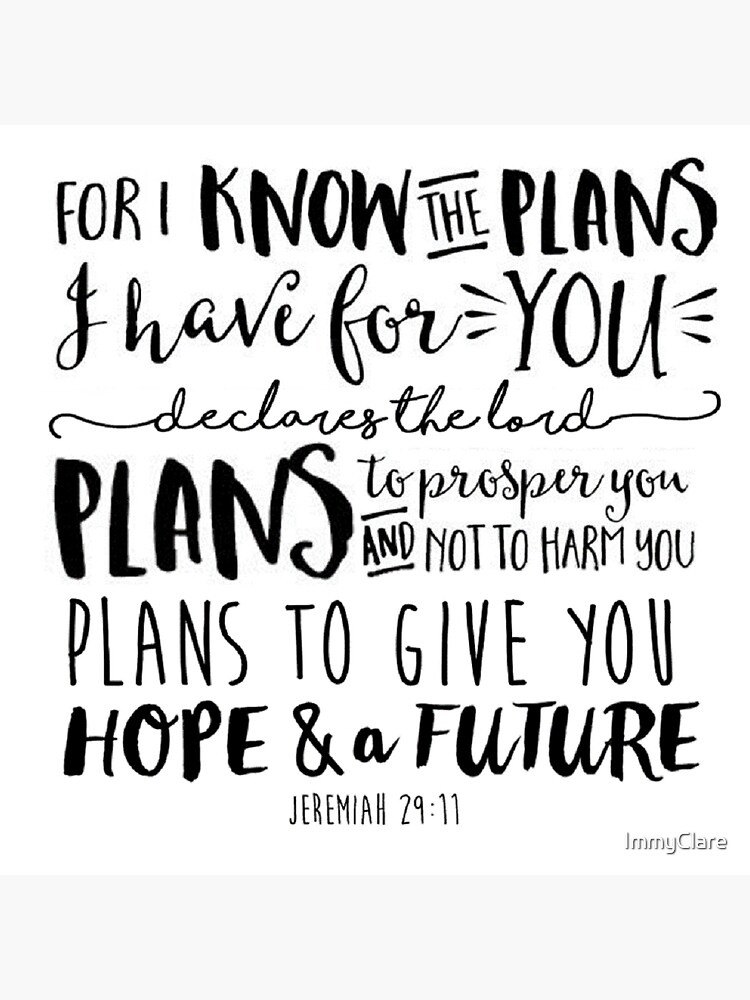 FOR I KNOW THE PLANS
I have for YOU
declares the lord
PLANS to prosper you
AND NOT TO HARM YOU
PLANS TO GIVE YOU
HOPE & a FUTURE
JEREMIAH 29:11
ImmyClare